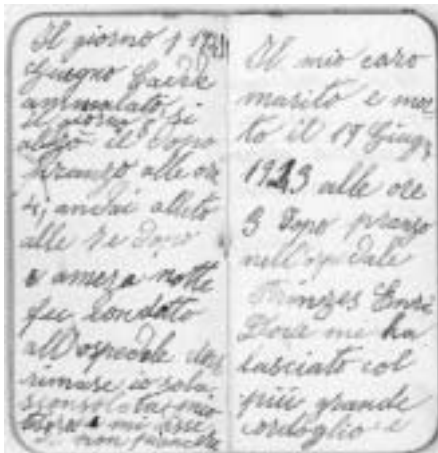 Il giorno 1
Giugno cadde
ammalato
il giorno si
alzò il dopo
pranzo alle ore
4, andai alleto
alle 7 e dopo
a meza notte
fu condoto
all'ospedale
rimase io sola
sconsolata mio
mi disse
di non piancere
Il mio caro
marito e mor
to il 17 Giug
1923 alle ore
3 dopo pranzo
nell'ospedale
Prinzes Enri
me ha
lasciato col
più grande
cordoglio e